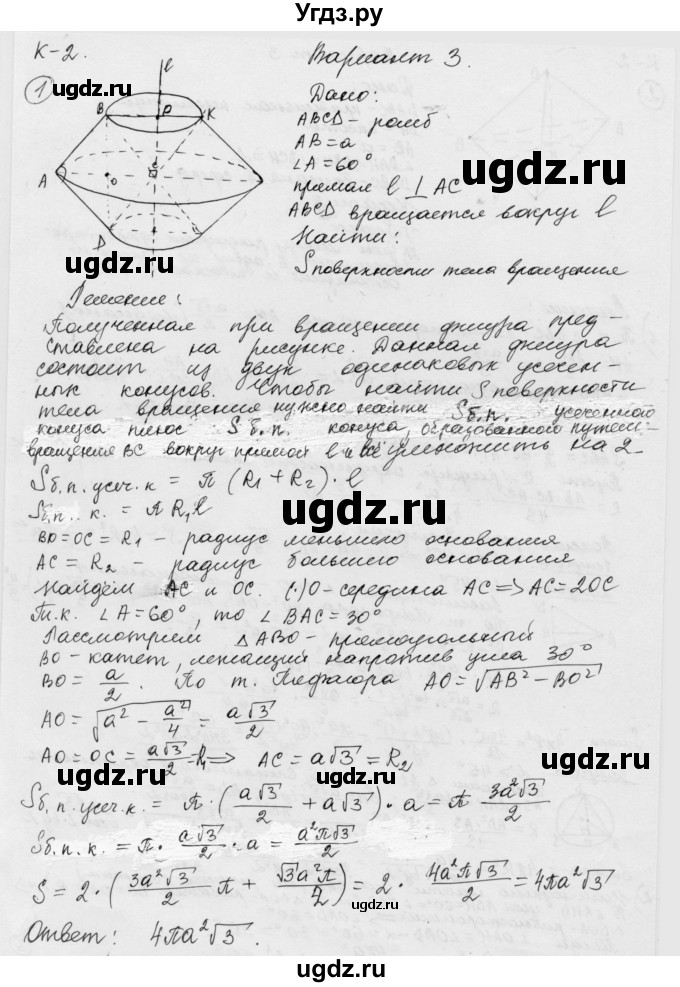 Угдз.ру
К-2. Вариант 3.
1
ugdz.ru
l
B O K
A O C
D
ugdz.ru
Дано:
ABCD – ромб
AB = a
∠A = 60°
прямая l ⊥ AC
ABCD вращается вокруг l
Найти:
S поверхности тела вращения
ugdz.ru
Решение:
Полученная при вращении фигура пред-
ставлена на рисунке. Данная фигура
состоит из двух одинаковых усечен-
ных конусов. Чтобы найти S поверхности
тела вращения нужно найти Sб.п. усеченного
конуса плюс Sб.п. конуса, образованного путем
вращения BC вокруг прямой l и всё умножить на 2
Sб.п. усеч. к = π (R₁ + R₂) · l
Sб.п. к. = π R₁ l
ugdz.ru
BO = OC = R₁ – радиус меньшего основания
AC = R₂ – радиус большего основания
Найдем AC и OC. (·)O – середина AC => AC = 2OC
Т.к. ∠A = 60°, то ∠BAC = 30°
Рассмотрим △ABO – прямоугольный
BO – катет, лежащий напротив угла 30°
BO = a/2. По т. Пифагора AO = √AB² – BO²
AO = √a² – a²/4 = a√3/2
AO = OC = a√3/2 = R₁ => AC = a√3 = R₂
ugdz.ru
ugdz.ru
Sб.п. усеч. к. = π · (a√3/2 + a√3) · a = π 3a²√3/2
Sб.п. к. = π · a√3/2 · a = a²π√3/2
S = 2 · (3a²√3/2 π + √3a²π/2) = 2 · 4a²π√3/2 = 4πa²√3
ugdz.ru
Ответ: 4πa²√3.
ugdz.ru
ugdz.ru